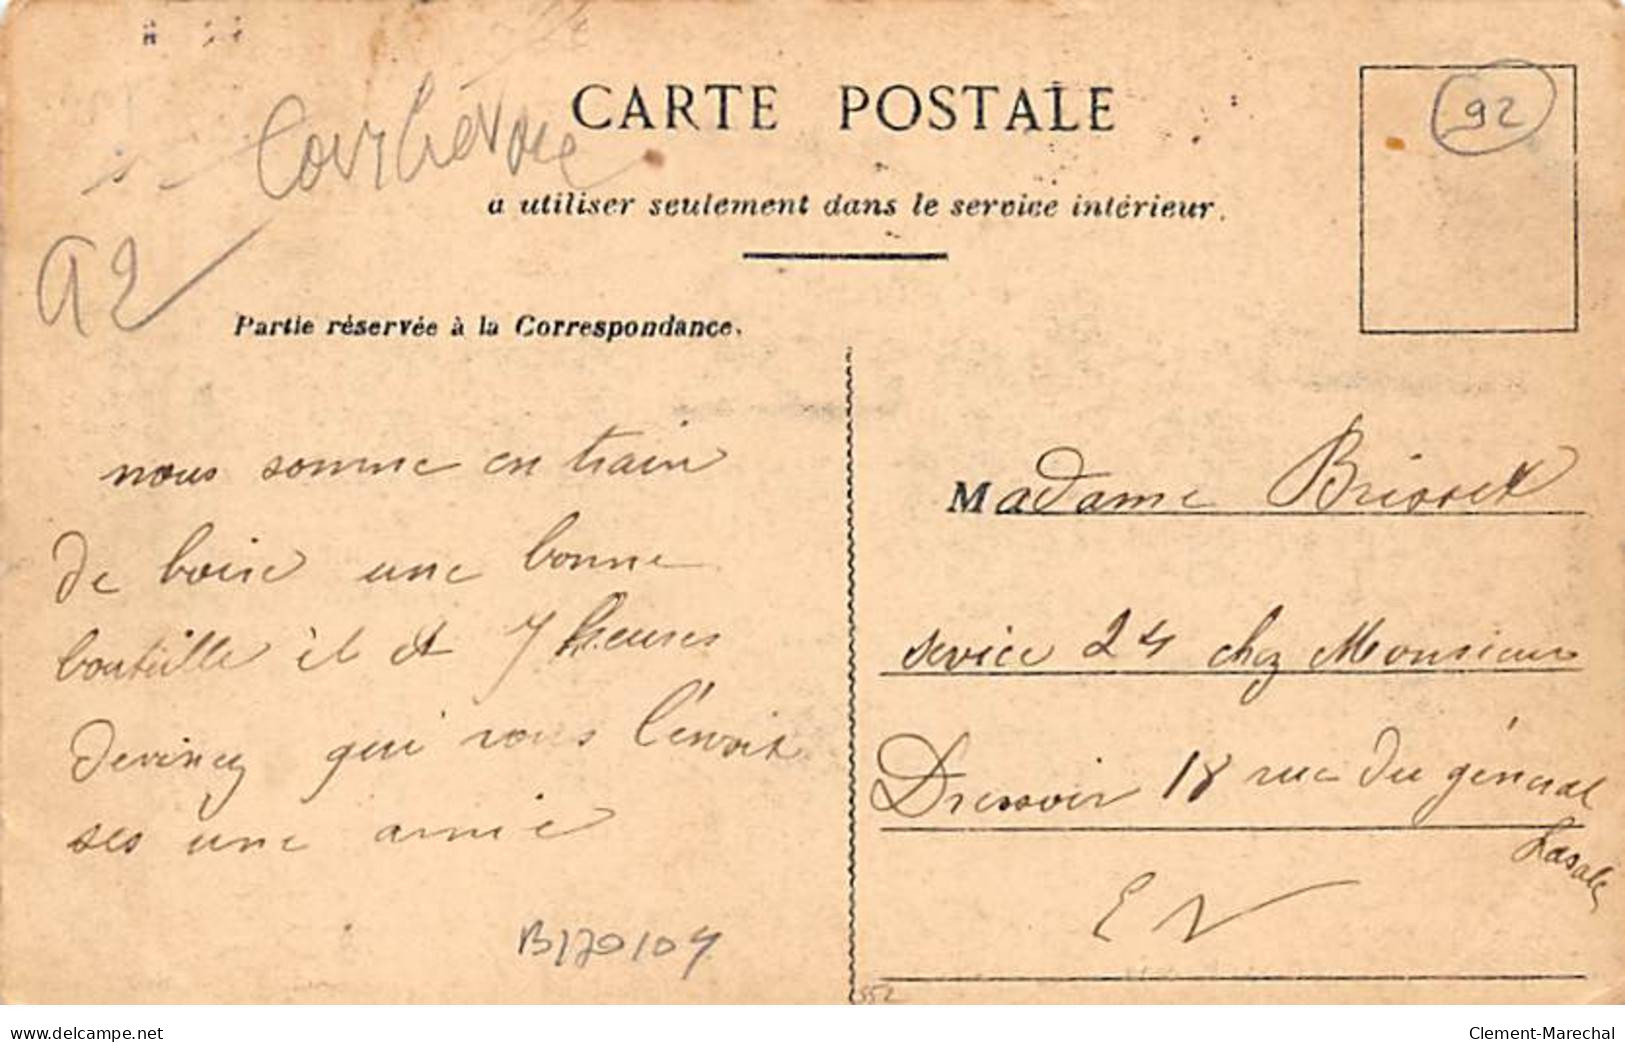 CARTE POSTALE
92
Courbevoie
a utiliser seulement dans le service intérieur.
92
Partie réservée à la Correspondance.
nous somme en train
de boire une bonne
bouteille il et 7 heures
devinez qui vous l'envoit
ses une amie
B170104
Madame Brisset
service 24 chez Monsieur
Dressoir 18 rue du général
Lasale
EV
552
www.delcampe.net
Clement-Marechal